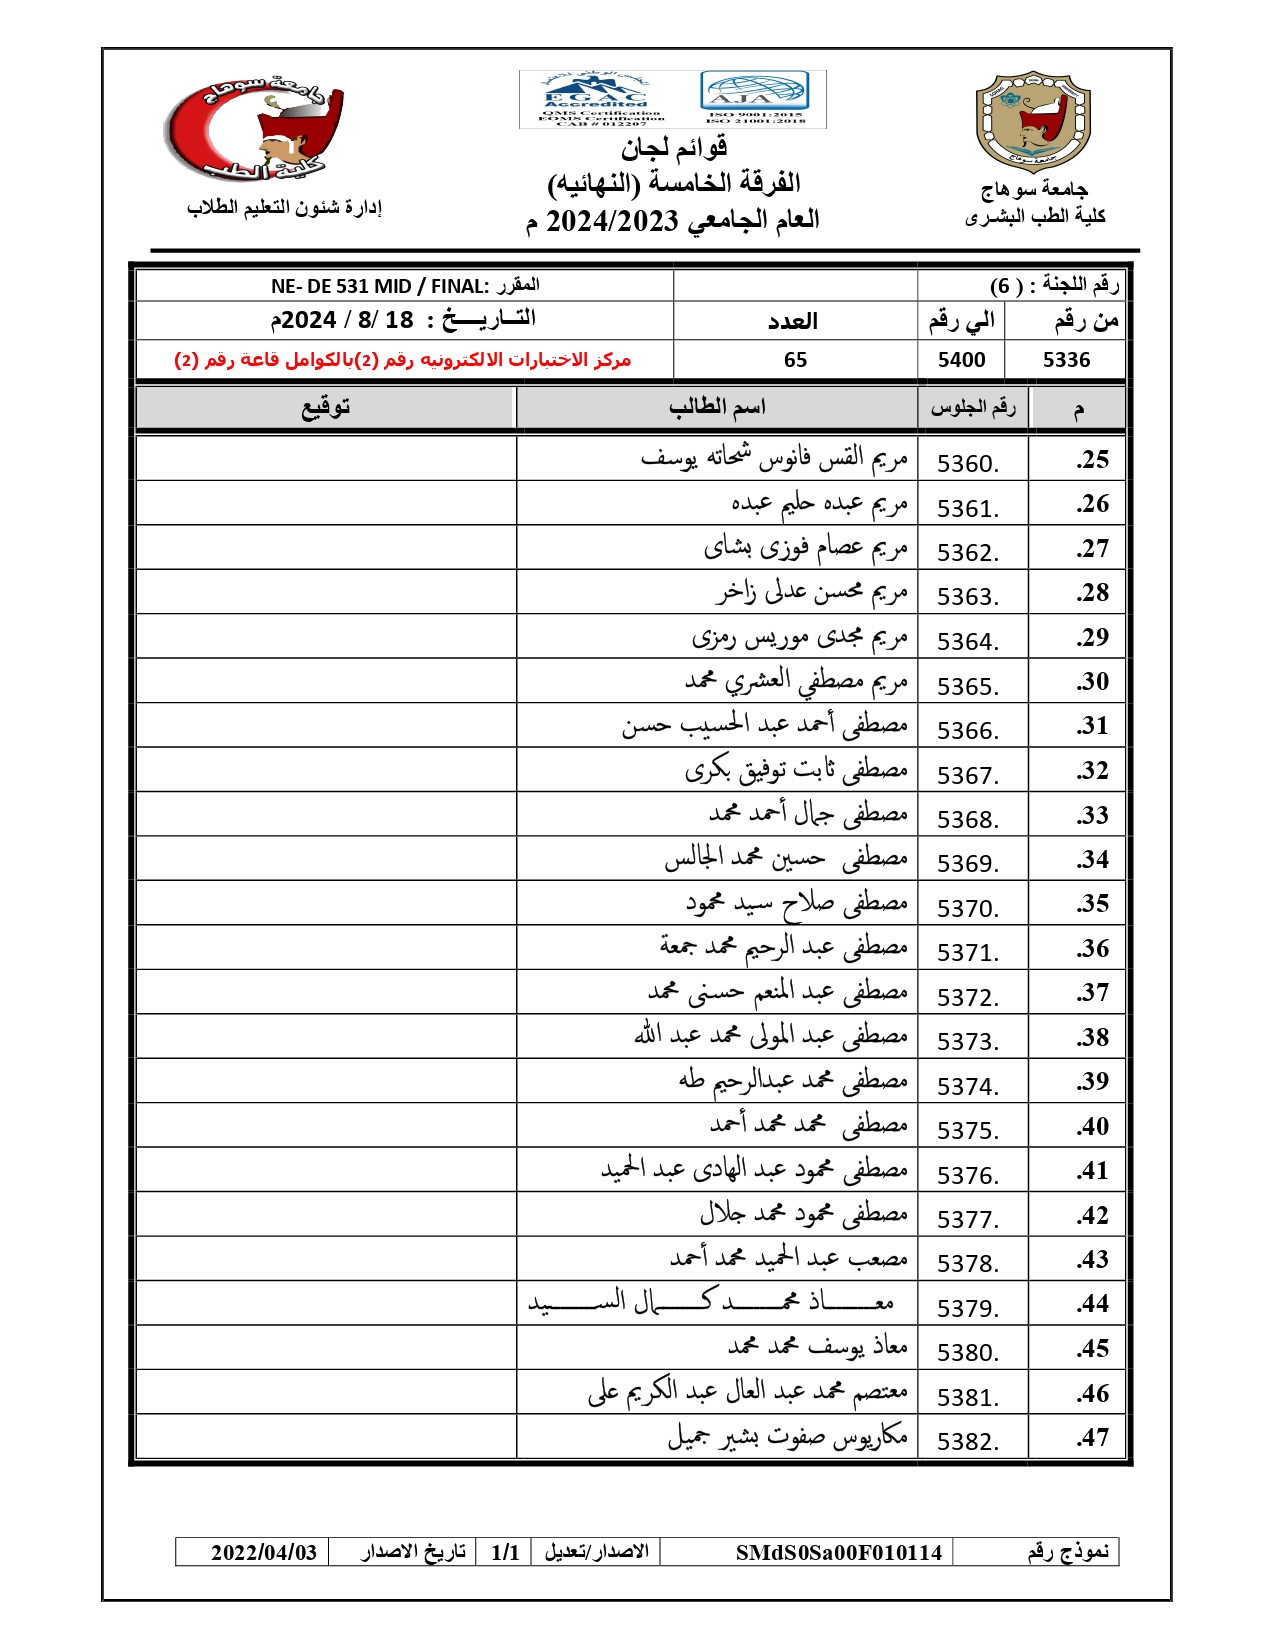 جامعة سوهاج
كلية الطب
إدارة شئون التعليم الطلاب
المجلس الوطني للاعتماد
EGAC
Accredited
QMS Certification
EOMS Certification
CAB # 012207
AJA
ISO 9001:2015
ISO 21001:2018
قوائم لجان
الفرقة الخامسة (النهائيه)
العام الجامعي 2024/2023 م
جامعة سوهاج
جامعة سوهاج
كلية الطب البشرى
رقم اللجنة : ( 6) المقرر :NE- DE 531 MID / FINAL
من رقم الي رقم العدد التــاريـــخ : 18 /8 / 2024م
5336 5400 65 مركز الاختبارات الالكترونيه رقم (2)بالكوامل قاعة رقم (2)
م رقم الجلوس اسم الطالب توقيع
25. 5360. مريم القس فانوس شحاته يوسف
26. 5361. مريم عبده حليم عبده
27. 5362. مريم عصام فوزى بشاى
28. 5363. مريم محسن عدلى زاخر
29. 5364. مريم مجدى موريس رمزى
30. 5365. مريم مصطفي العشري محمد
31. 5366. مصطفى أحمد عبد الحسيب حسن
32. 5367. مصطفى ثابت توفيق بكرى
33. 5368. مصطفى جمال أحمد محمد
34. 5369. مصطفى حسين محمد الجالس
35. 5370. مصطفى صلاح سيد محمود
36. 5371. مصطفى عبد الرحيم محمد جمعة
37. 5372. مصطفى عبد المنعم حسنى محمد
38. 5373. مصطفى عبد المولى محمد عبد الله
39. 5374. مصطفى محمد عبدالرحيم طه
40. 5375. مصطفى محمد محمد أحمد
41. 5376. مصطفى محمود عبد الهادى عبد الحميد
42. 5377. مصطفى محمود محمد جلال
43. 5378. مصعب عبد الحميد محمد أحمد
44. 5379. معــــــاذ محمــــــد كــــــمال الســــــيد
45. 5380. معاذ يوسف محمد محمد
46. 5381. معتصم محمد عبد العال عبد الكريم على
47. 5382. مكاريوس صفوت بشير جميل
نموذج رقم SMdS0Sa00F010114 الاصدار/تعديل 1/1 تاريخ الاصدار 2022/04/03